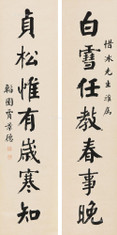 惜冰先生雅属
白雪任教春事晚
貞松惟有歲寒知
韜園賈景德